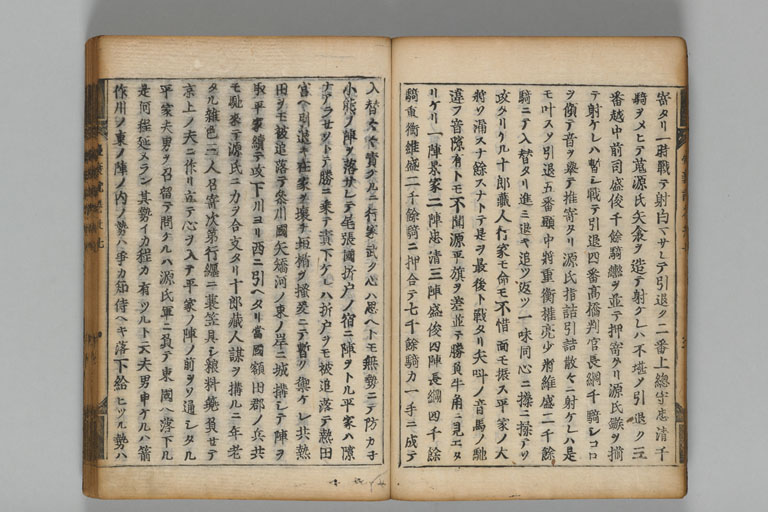 寄タリ一時戦テ射白マサレテ引退ク二番上總守忠清千
騎ヲメヒテ蒐源氏矢衾ヲ造テ射ケレハ不堪メ引退ク三
番越中前司盛俊千餘騎繼ヲ並テ押寄タリ源氏鏃ヲ揃
テ射ケレハ暫シ戦テ引退四番高橋判官長綱千騎シコロ
ヲ傾テ音ヲ擧テ推寄タリ源氏指詰引詰散々ニ射ケレハ是
モ叶スソ引退五番頭中將重衡權亮少將維盛二千餘
騎ニテ入替タリ進ミ退ヤ追ツ返ツ一味同心ニ操ニ操テソ
攻タリケル十郎藏人行家モ命モ不惜面モ振ス平家ノ大
勢ソ漏スナ餘スナトテ是ヲ最後ト戦タリ夫叫ノ音馬ノ馳
違フ音隙有トモ不聞源平旗ヲ差並テ勝負牛角ニ見エタ
リケリ一陣景家二陣忠清三陣盛俊四陣長綱四千餘
騎重衡維盛二千餘騎ニ押合テ七千餘騎カ一手ニ成テ
入替々々責クルニ行家武ク心ハ思ヘトモ無勢ニテ防カ子
小熊ノ陣ヲ落サレテ尾張國折戸ノ宿ニ陣ヲトル平家ハ隙
ナアラセソトテ勝ニ乘テ責下ケレハ折戸ヲモ被追落テ熱田
宮ヘ引退キ在家ヲ壞チ垣楯ヲ播爰ニテ暫ク禦ケレ共熱
田ヲモ被追落テ參川國矢矯河ノ東ノ岸ニ城構シテ陣ヲ
取平家續テ攻下川ヨリ西ニ引ヘタリ當國額田郡ノ兵共
モ馳參テ源氏ニ力ヲ合支タリ十郎藏人謀ヲ構ル二年老
タル雜色三人召寄次第行纒ニ蓑笠具シ粮料箢負セテ
京上ノ夫ニ作リ立テ心ヲ入テ平家ノ陣ノ前ヲソ通シタル
平家夫男ヲ召留テ問ケルハ源氏軍ニ負テ東國ヘ落下ル
是何程延メラン其勢イカ程カ有ツルト云夫男申ケルハ箭
作川ノ東ノ陣ノ内ノ勢ハ爭カ知侍ヘキ落下給ヒツル勢ハ